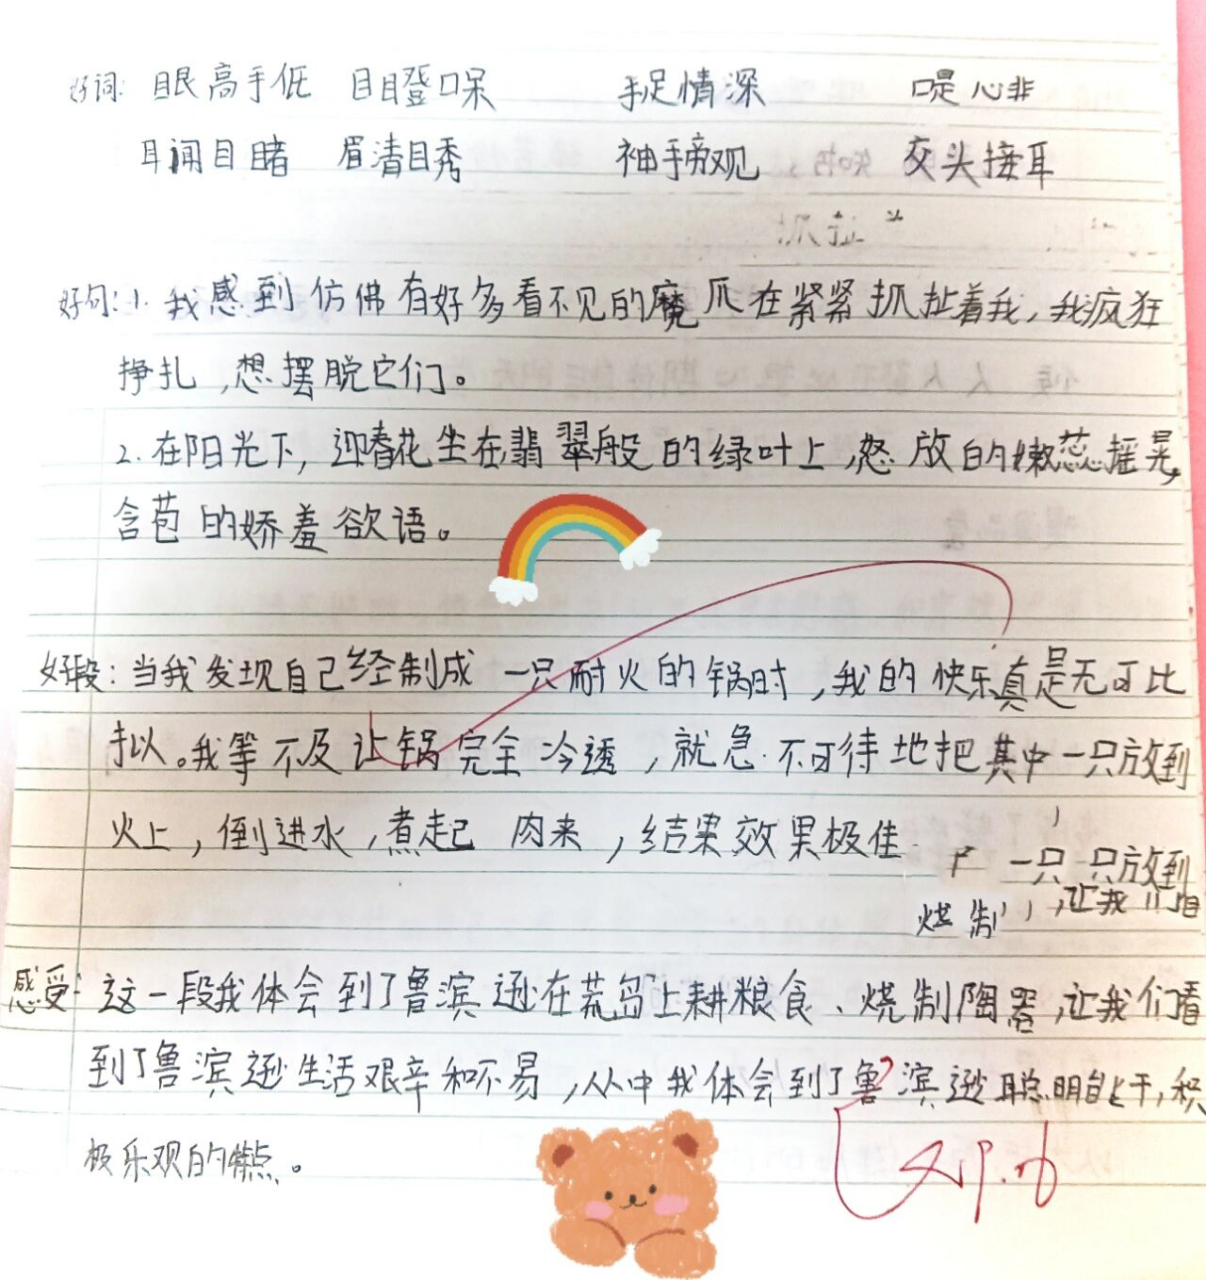 好词: 眼高手低 目瞪口呆 手足情深 口是心非
耳闻目睹 眉清目秀 袖手旁观 交头接耳
好句: 1. 我感到仿佛有好多看不见的魔爪在紧紧抓扯着我, 我疯狂
挣扎,想摆脱它们。
2. 在阳光下, 迎春花坐在翡翠般的绿叶上,怒放的嫩蕊摇晃,
含苞的娇羞欲语。
好段: 当我发现自己经制成一只耐火的锅时,我的快乐真是无可比
拟。我等不及让锅完全冷透,就急不可待地把其中一只放到
火上,倒进水,煮起肉来,结果效果极佳
一只 只放到
烧制 ,让我们看
感受: 这一段我体会到了鲁滨逊在荒岛上耕粮食、烧制陶器,让我们看
到了鲁滨逊生活艰辛和不易,从中我体会到了鲁滨逊聪明能干,积
极乐观的特点。